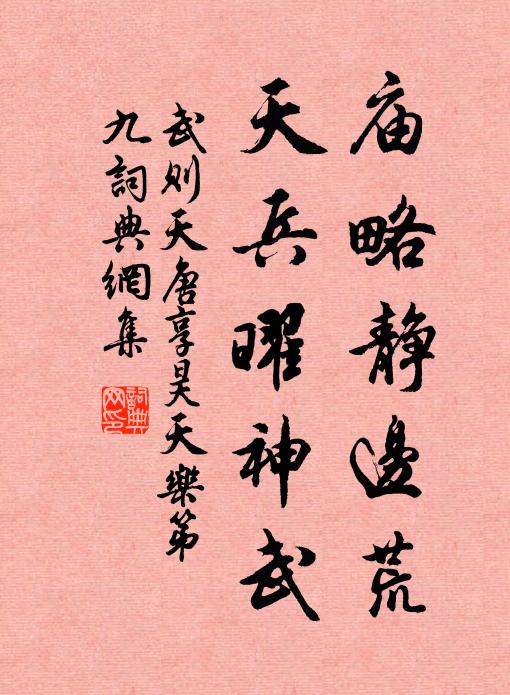 庙略静邊荒
天兵曜神武
武则天唐享昊天樂第
九詞典網集
詞典
网印